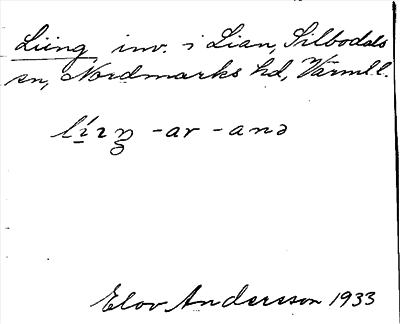 Liing, inv. i Lian, Silbodals
sn, Nordmarks hd, Värml.l.
-ar -anə
Elov Andersson 1933